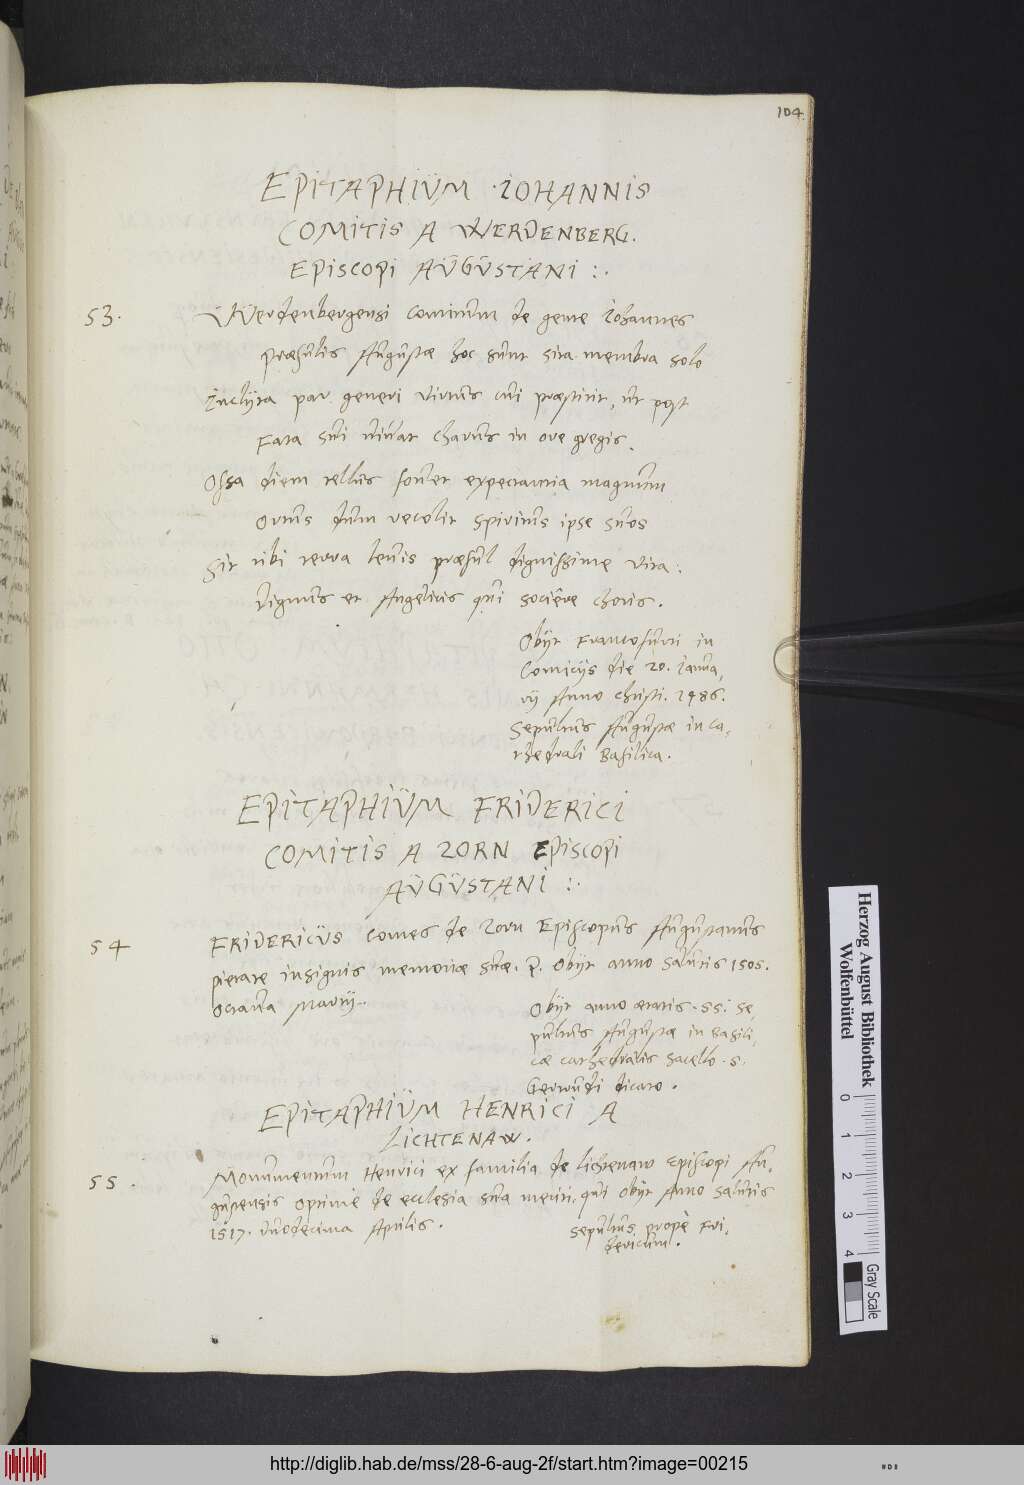 104
EPITAPHIŬM IOHANNIS
COMITIS A WERDENBERG.
EPISCOPI AŬGŬSTANI :.
53.
Werdenbergensi Cominum de gente Iohannes
Præsulis Augustæ hoc sunt sita membra solo
Inclyta par generi virtus cui præstitit, ut post
Fata sui vivat charus in ore gregis.
Ossa diem tellus fovet expectantia magnum
Ortus dum recolit spiritus ipse suos
Sit tibi terra levis præsul dignissime vita:
Dignus et Angelicis qui sociêre choris.
Obijt Francofurti in
Comicijs die 20. Janua,
rij Anno Christi. 1486.
Sepultus Augustæ in ca,
thedrali Basilica.
EPITAPHIŬM FRIDERICI
COMITIS A ZORN EPISCOPI
AŬGŬSTANI :.
54
FRIDERICŬS Comes de Zorn Episcopus Augustanus
pietate insignis memoriæ suæ. p. Obijt anno salutis 1505.
octava Martij..
Obijt anno ætatis. 55. Se,
pultus Augustæ in Basili,
cæ cathedralis sacello. S.
Gertrudi dicato.
EPITAPHIŬM HENRICI A
LICHTENAW.
55.
Monumentum Henrici ex familia de lichtenaw Episcopi Au,
gustensis optime de ecclesia sua meriti, qui obijt Anno salutis
1517. duodecima Aprilis.
Sepultus propè Fri,
dericum.
Herzog August Bibliothek
Wolfenbüttel
0 1 2 3 4
Gray Scale
http://diglib.hab.de/mss/28-6-aug-2f/start.htm?image=00215